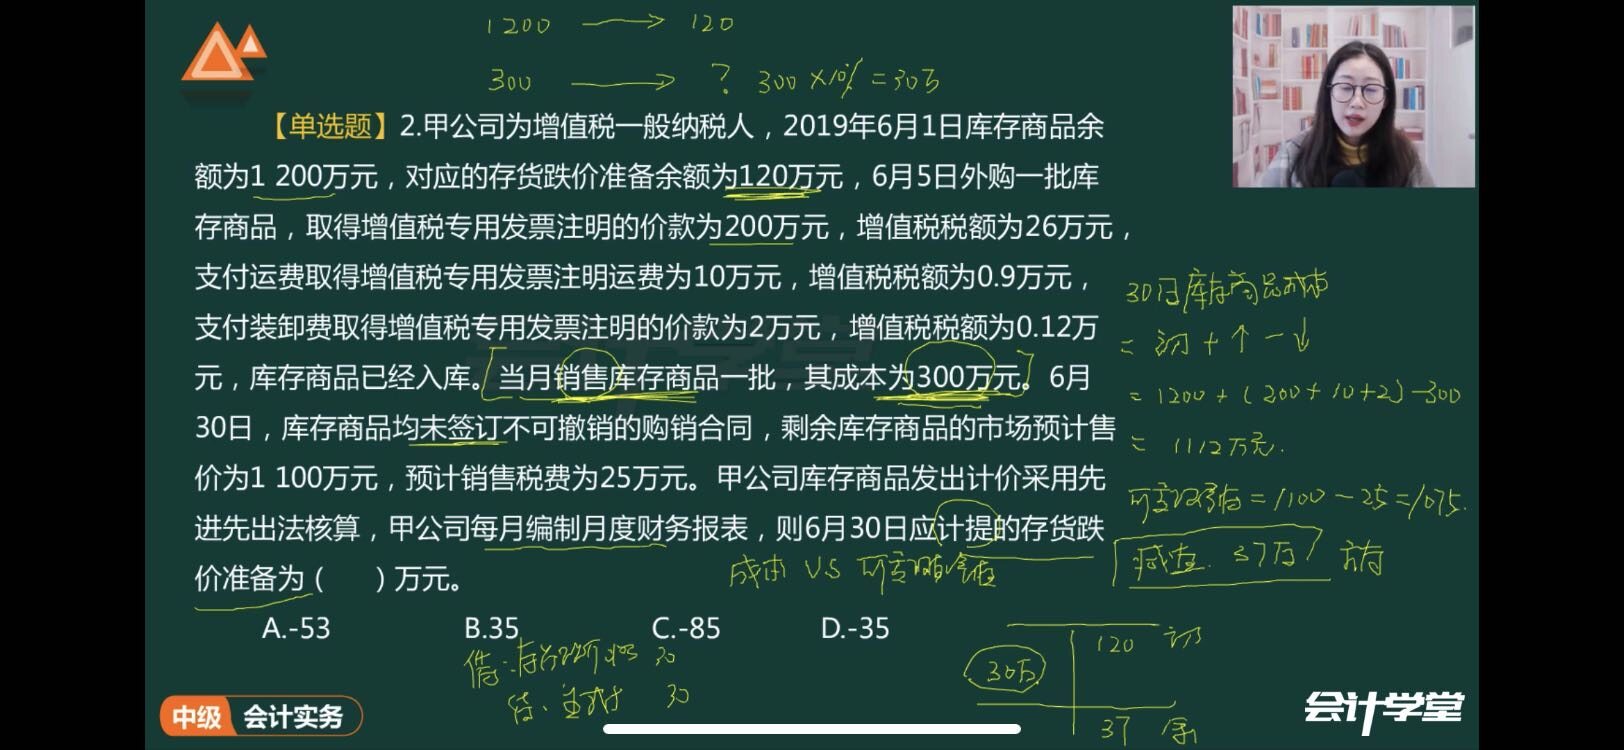 1200 → 120
300 → ? 300×10%=30万
【单选题】2.甲公司为增值税一般纳税人，2019年6月1日库存商品余
额为1 200万元，对应的存货跌价准备余额为120万元，6月5日外购一批库
存商品，取得增值税专用发票注明的价款为200万元，增值税税额为26万元，
支付运费取得增值税专用发票注明运费为10万元，增值税税额为0.9万元，
支付装卸费取得增值税专用发票注明的价款为2万元，增值税税额为0.12万
元，库存商品已经入库。当月销售库存商品一批，其成本为300万元。6月
30日，库存商品均未签订不可撤销的购销合同，剩余库存商品的市场预计售
价为1 100万元，预计销售税费为25万元。甲公司库存商品发出计价采用先
进先出法核算，甲公司每月编制月度财务报表，则6月30日应计提的存货跌
价准备为（　　）万元。
30日库存商品成本
= 初 + ↑ - ↓
= 1200 + (200+10+2) - 300
= 1112万元.
=1100-25=1075.
减值. 37万
成本 VS
A.-53 B.35 C.-85 D.-35
借: 30
贷: 30
120 初
30万
37 余
中级 会计实务
会计学堂